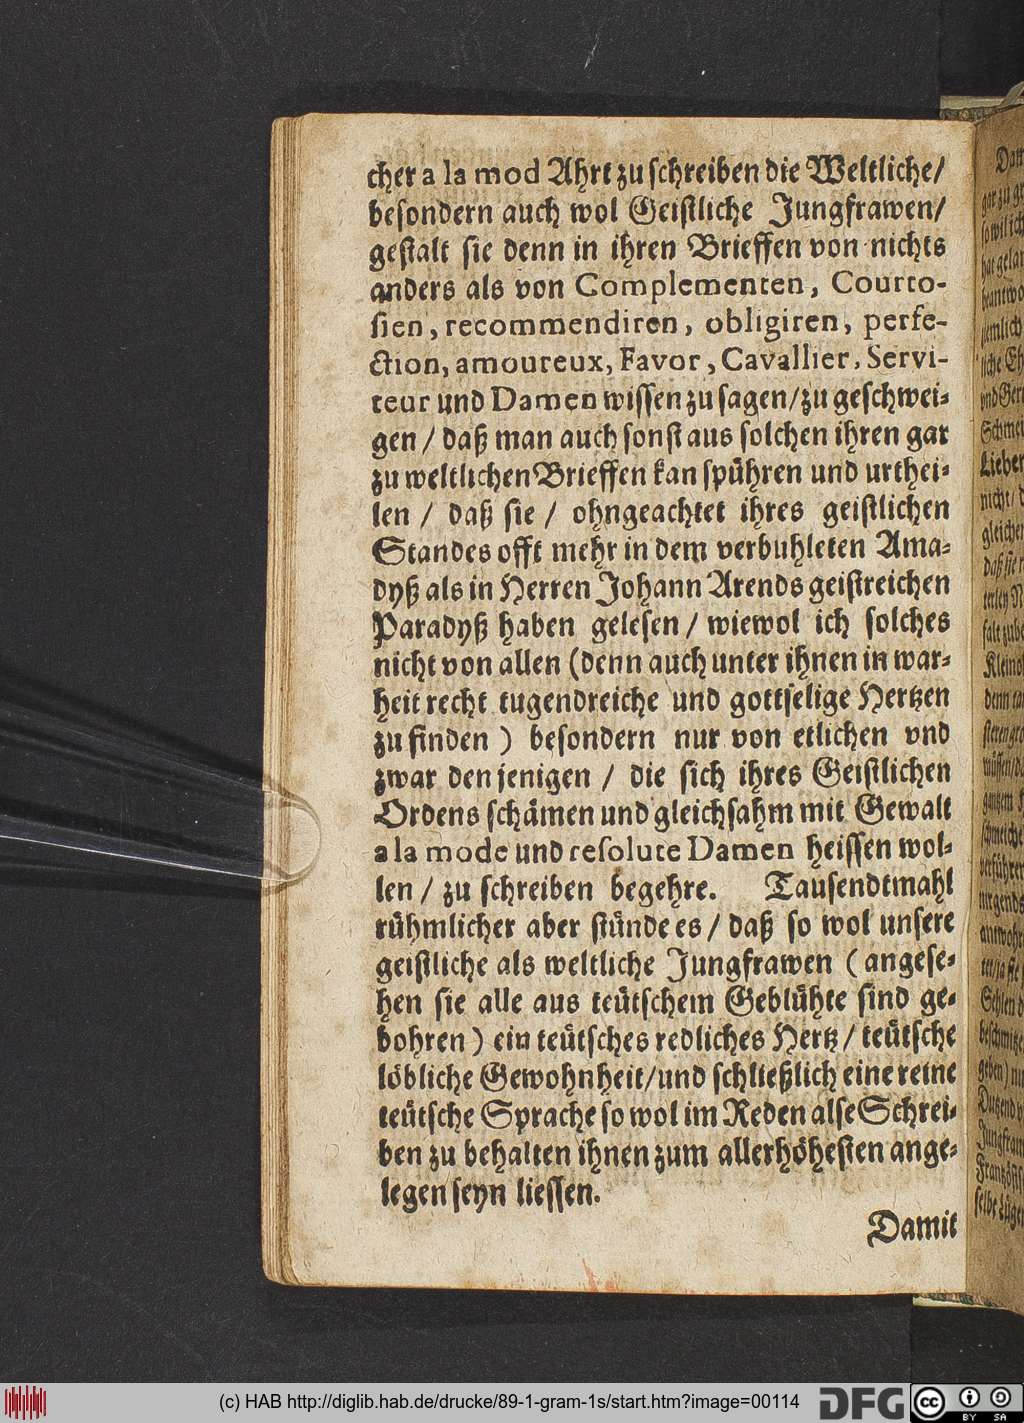 cher a la mod Ahrt zu schreiben die Weltliche/
besondern auch wol Geistliche Jungfrawen/
gestalt sie denn in ihren Brieffen von nichts
anders als von Complementen, Courto-
sien, recommendiren, obligiren, perfe-
ction, amoureux, Favor, Cavallier, Servi-
teur und Damen wissen zu sagen/zu geschwei-
gen / daß man auch sonst aus solchen ihren gar
zu weltlichen Brieffen kan spühren und urthei-
len / daß sie / ohngeachtet ihres geistlichen
Standes offt mehr in dem verbuhleten Ama-
dyß als in Herren Johann Arends geistreichen
Paradyß haben gelesen / wiewol ich solches
nicht von allen (denn auch unter ihnen in war-
heit recht tugendreiche und gottselige Hertzen
zu finden ) besondern nur von etlichen vnd
zwar denjenigen / die sich ihres Geistlichen
Ordens schämen und gleichsahm mit Gewalt
a la mode und resolute Damen heissen wol-
len / zu schreiben begehre. Tausendtmahl
rühmlicher aber stünde es / daß so wol unsere
geistliche als weltliche Jungfrawen ( angese-
hen sie alle aus teütschem Geblühte sind ge-
bohren ) ein teütsches redliches Hertz / teütsche
löbliche Gewohnheit/und schließlich eine reine
teütsche Sprache so wol im Reden alse Schrei-
ben zu behalten ihnen zum allerhöhesten ange-
legen seyn liessen.
Damit
(c) HAB http://diglib.hab.de/drucke/89-1-gram-1s/start.htm?image=00114
DFG
cc
BY SA